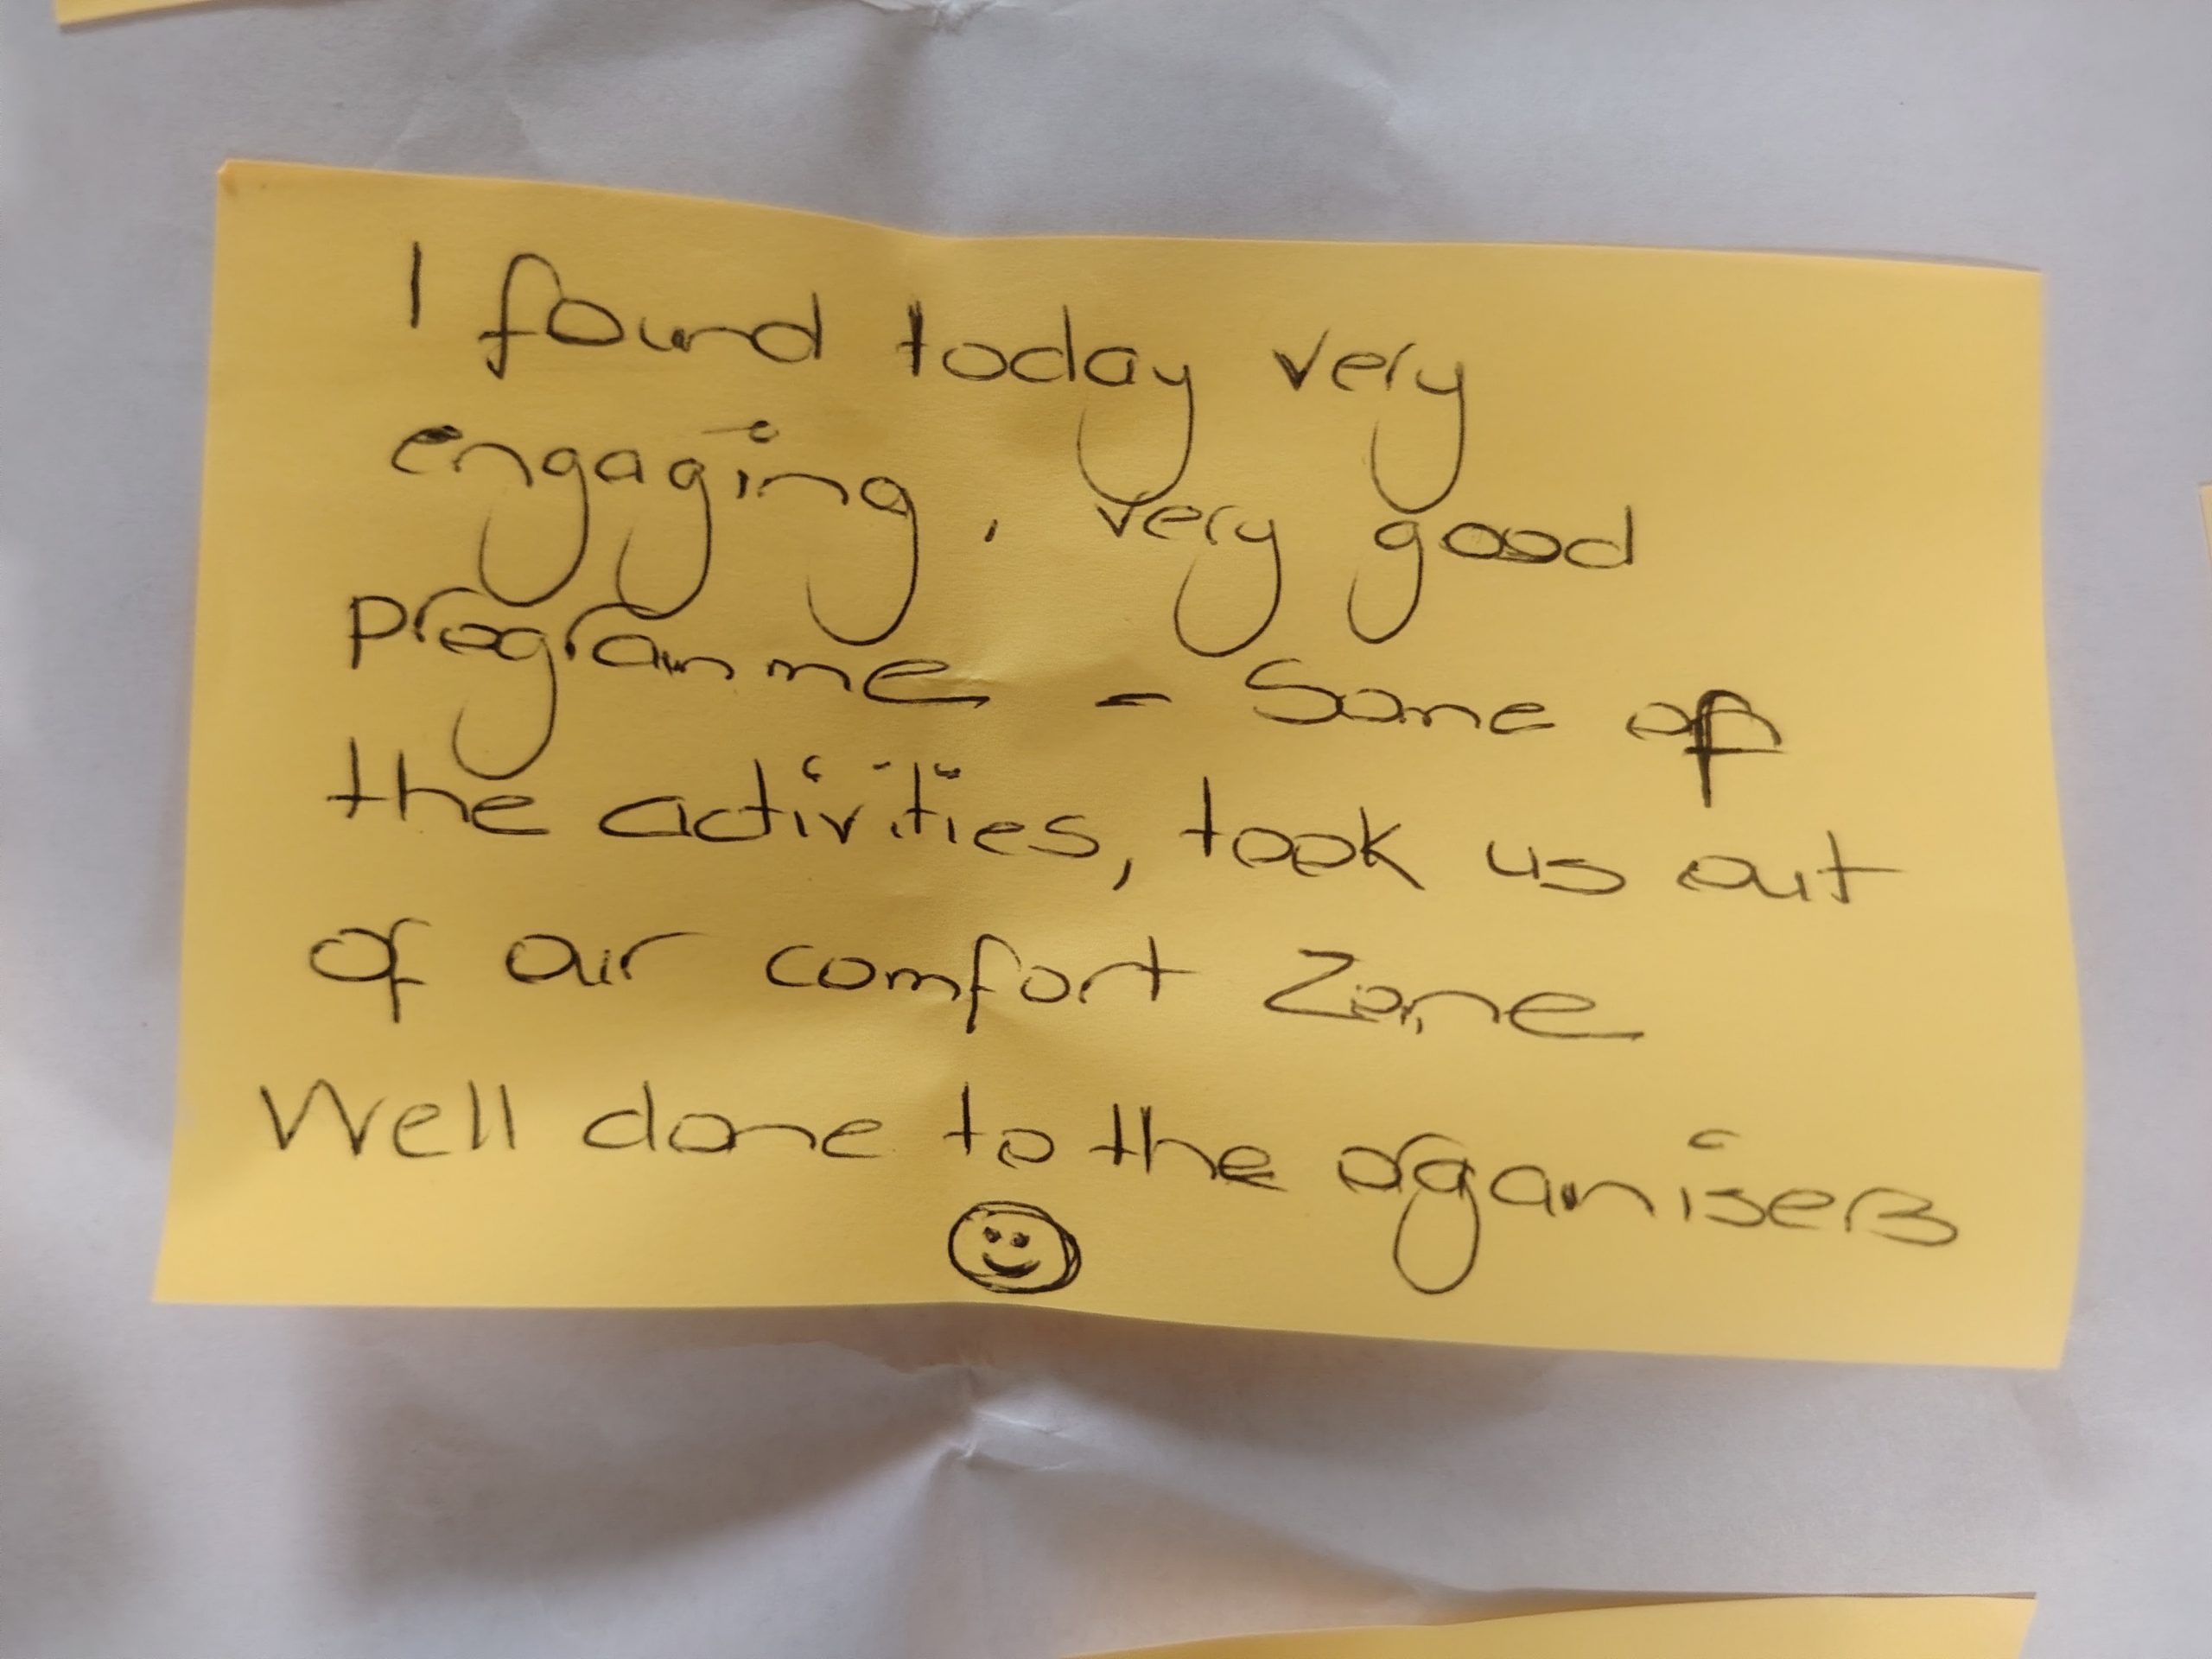 I found today very
engaging, very good
programme - Some of
the activities, took us out
of our comfort zone
Well done to the organisers